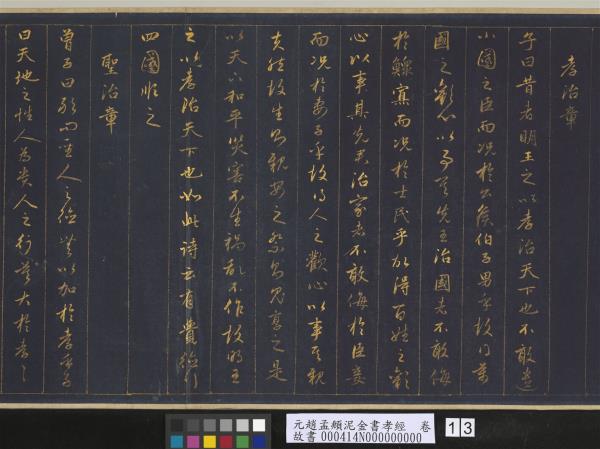 孝治章
子曰昔者明王之以孝治天下也不敢遺
小國之臣而況於公侯伯子男乎故得萬
國之歡心以事其先王治國者不敢侮
於鰥寡而況於士民乎故得百姓之歡
心以事其先君治家者不敢侮於臣妾
而況於妻子乎故得人之歡心以事其親
夫然故生則親安之祭則鬼享之是
以天下和平災害不生禍亂不作故明王
之以孝治天下也如此詩云有覺德行
四國順之
聖治章
曾子曰敢問聖人之德無以加於孝乎子
曰天地之性人為貴人之行莫大於孝孝
元趙孟頫泥金書孝經 卷
故書000414N000000000
13